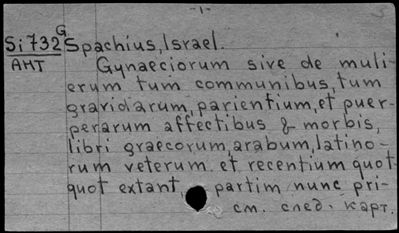 -1-
Si732G Spachius, Israel.
АНТ Gynaeciorum sive de muli-
erum tum communibus, tum
gravidarum, parientium, et puer-
perarum affectibus & morbis,
libri graecorum, arabum, latino-
rum veterum et recentium quot-
quot extant, partim nunc pri-
см. след. карт.